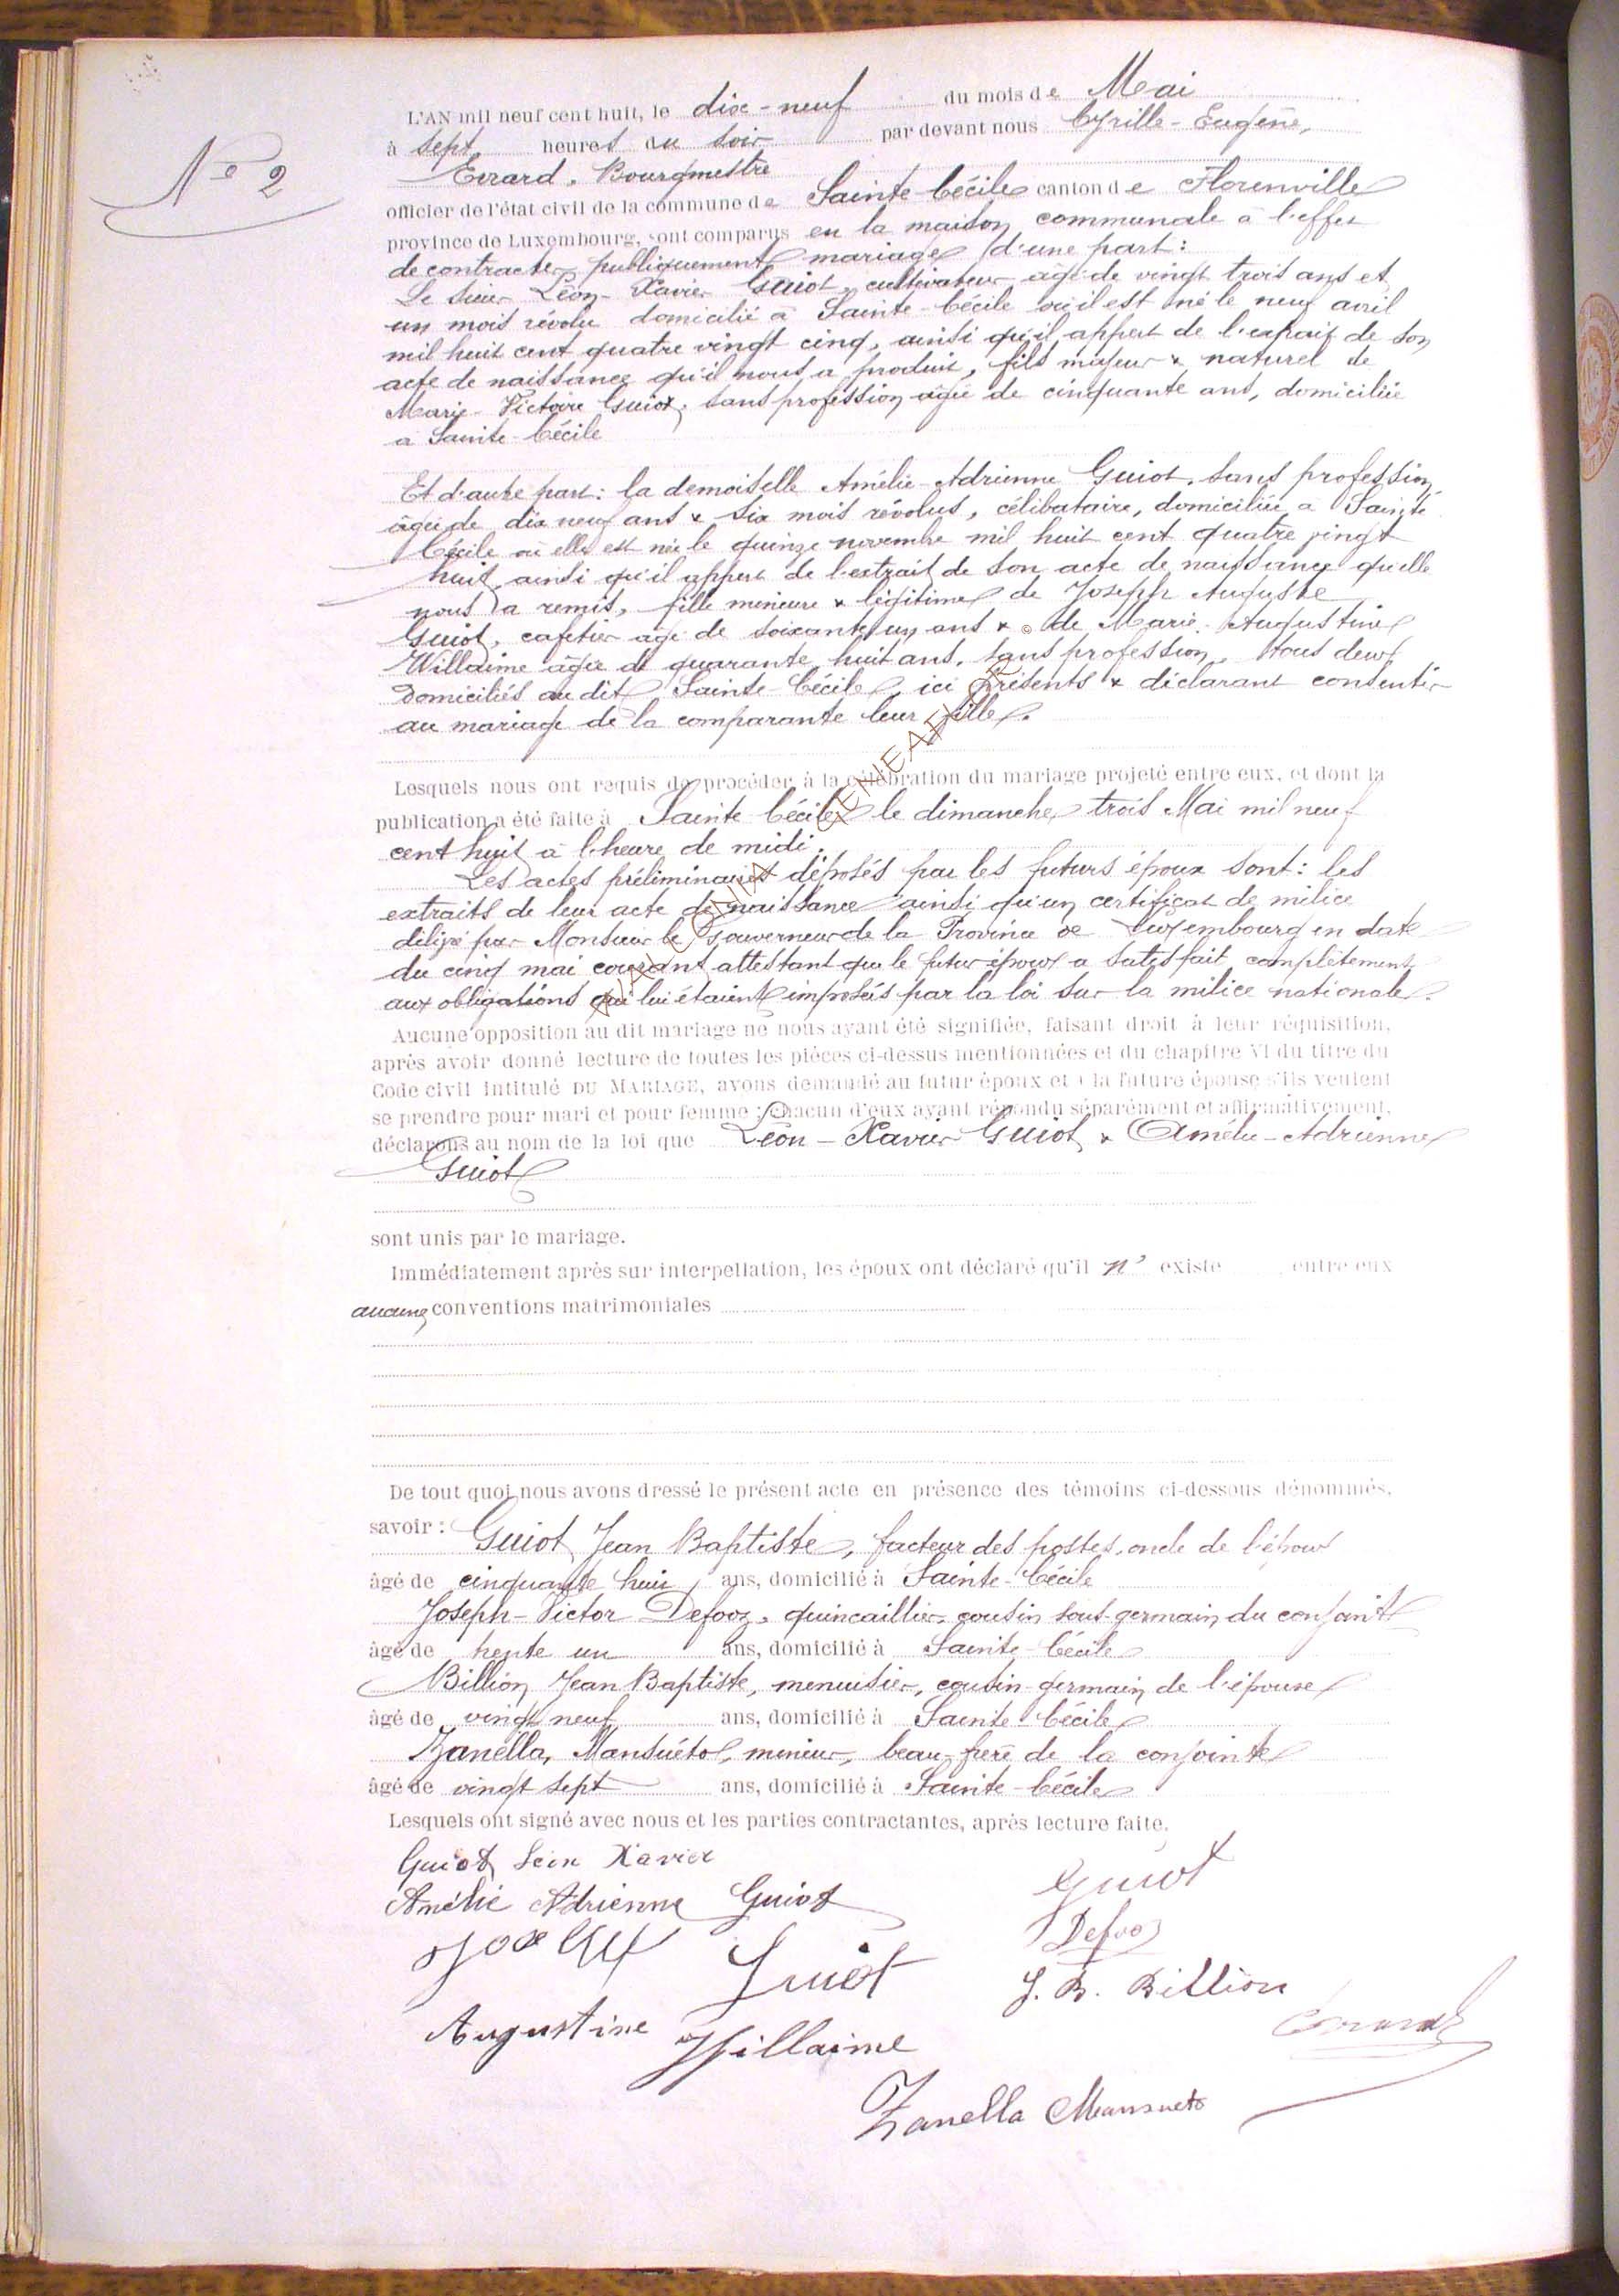 N° 2
L'AN mil neuf cent huit, le dix-neuf du mois de Mai
à sept heures du soir par devant nous Cyrille-Eugène,
Evrard, Bourgmestre
officier de l'état civil de la commune de Sainte-Cécile canton de Florenville
province de Luxembourg, sont comparus en la maison communale à l'effet
de contracter publiquement mariage d'une part:
Le sieur Léon-Xavier Guiot, cultivateur âgé de vingt trois ans et
un mois révolu domicilié à Sainte-Cécile où il est né le neuf avril
mil huit cent quatre vingt cinq, ainsi qu'il appert de l'extrait de son
acte de naissance qu'il nous a produit, fils majeur & naturel de
Marie-Victoire Guiot, sans profession âgée de cinquante ans, domiciliée
à Sainte-Cécile
Et d'autre part: la demoiselle Amélie-Adrienne Guiot, sans profession,
âgée de dix neuf ans & six mois révolus, célibataire, domiciliée à Sainte
Cécile où elle est née le quinze novembre mil huit cent quatre vingt
huit, ainsi qu'il appert de l'extrait de son acte de naissance qu'elle
nous a remis, fille mineure & légitime de Joseph Auguste
Guiot, cafetier âgé de soixante un ans & de Marie-Augustine
Willaime âgée de quarante huit ans, sans profession, tous deux
domiciliés au dit Sainte-Cécile, ici présents & déclarant consentir
au mariage de la comparante leur fille.
Lesquels nous ont requis de procéder à la célébration du mariage projeté entre eux, et dont la
publication a été faite à Sainte Cécile le dimanche trois Mai mil neuf
cent huit à l'heure de midi.
Les actes préliminaires déposés par les futurs époux sont: les
extraits de leur acte de naissance ainsi qu'un certificat de milice
délivré par Monsieur le Gouverneur de la Province de Luxembourg en date
du cinq mai courant attestant que le futur époux a satisfait complètement
aux obligations qui lui étaient imposées par la loi sur la milice nationale.
Aucune opposition au dit mariage ne nous ayant été signifiée, faisant droit à leur réquisition,
après avoir donné lecture de toutes les pièces ci-dessus mentionnées et du chapitre VI du titre du
Code civil intitulé DU MARIAGE, avons demandé au futur époux et à la future épouse s'ils veulent
se prendre pour mari et pour femme ; chacun d'eux ayant répondu séparément et affirmativement,
déclarons au nom de la loi que Léon-Xavier Guiot & Amélie-Adrienne
Guiot
sont unis par le mariage.
Immédiatement après sur interpellation, les époux ont déclaré qu'il n' existe entre eux
aucunes conventions matrimoniales
De tout quoi nous avons dressé le présent acte en présence des témoins ci-dessous dénommés,
savoir : Guiot Jean Baptiste, facteur des postes, oncle de l'époux
âgé de cinquante huit ans, domicilié à Sainte-Cécile
Joseph-Victor Defooz, quincaillier, cousin sous-germain du conjoint
âgé de trente un ans, domicilié à Sainte-Cécile
Billion Jean Baptiste, menuisier, cousin-germain de l'épouse
âgé de vingt neuf ans, domicilié à Sainte-Cécile
Zanella, Mansuéto, mineur, beau-frère de la conjointe
âgé de vingt sept ans, domicilié à Sainte-Cécile
Lesquels ont signé avec nous et les parties contractantes, après lecture faite.
Guiot Léon Xavier
Amélie Adrienne Guiot
Guiot
Guiot
Defooz
J. B. Billion
Augustine Willaime
Evrard
Zanella Mansueto